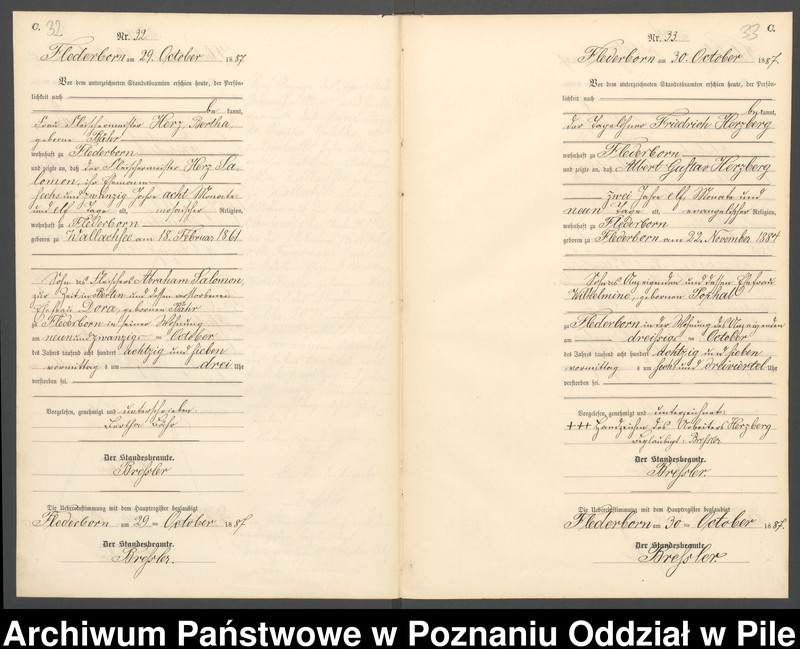 C. 32
Nr. 32
Flederborn am 29. October 1887
Vor dem unterzeichneten Standesbeamten erschien heute, der Persön-
lichkeit nach
be kannt,
Frau Fleischermeister Herz, Bertha,
geborne Bähr
wohnhaft zu Flederborn
und zeigte an, daß der Fleischermeister Herz Sa-
lomon, ihr Ehemann
sechs und zwanzig Jahre acht Monate
und elf Tage alt, mosaischer Religion,
wohnhaft zu Flederborn
geboren zu Wallachsee am 18. Februar 1861
Sohn des Fleischers Abraham Salomon,
zur Zeit in Berlin und dessen verstorbenen
Ehefrau Dora, gebornen Bähr
zu Flederborn in seiner Wohnung
am neunundzwanzig ten October
des Jahres tausend acht hundert achtzig und sieben
vormittag s um drei Uhr
verstorben sei.
Vorgelesen, genehmigt und unterschrieben:
Der Standesbeamte.
Bressler
Die Uebereinstimmung mit dem Hauptregister beglaubigt
Flederborn am 29 ten October 1887
Der Standesbeamte.
Bressler.
33 C.
Nr. 33.
Flederborn am 30. October 1887.
Vor dem unterzeichneten Standesbeamten erschien heute, der Persön-
lichkeit nach
be kannt,
der Tagelöhner Friedrich Herzberg
wohnhaft zu Flederborn
und zeigte an, daß Albert Gustav Herzberg
zwei Jahre elf Monate und
neun Tage alt, evangelischer Religion,
wohnhaft zu Flederborn
geboren zu Flederborn am 22. November 1884
Sohn des Anzeigenden und dessen Ehefrau
Wilhelmine, gebornen
zu Flederborn in der Wohnung des Anzeigenden
am dreißig ten October
des Jahres tausend acht hundert achtzig und sieben
vormittag s um sechs und dreiviertel Uhr
verstorben sei.
Vorgelesen, genehmigt und unterzeichnet:
+++ Handzeichen des Arbeiters Herzberg
beglaubigt: Bressler
Der Standesbeamte.
Bressler.
Die Uebereinstimmung mit dem Hauptregister beglaubigt
Flederborn am 30 ten October 1887.
Der Standesbeamte.
Bressler.
Archiwum Państwowe w Poznaniu Oddział w Pile